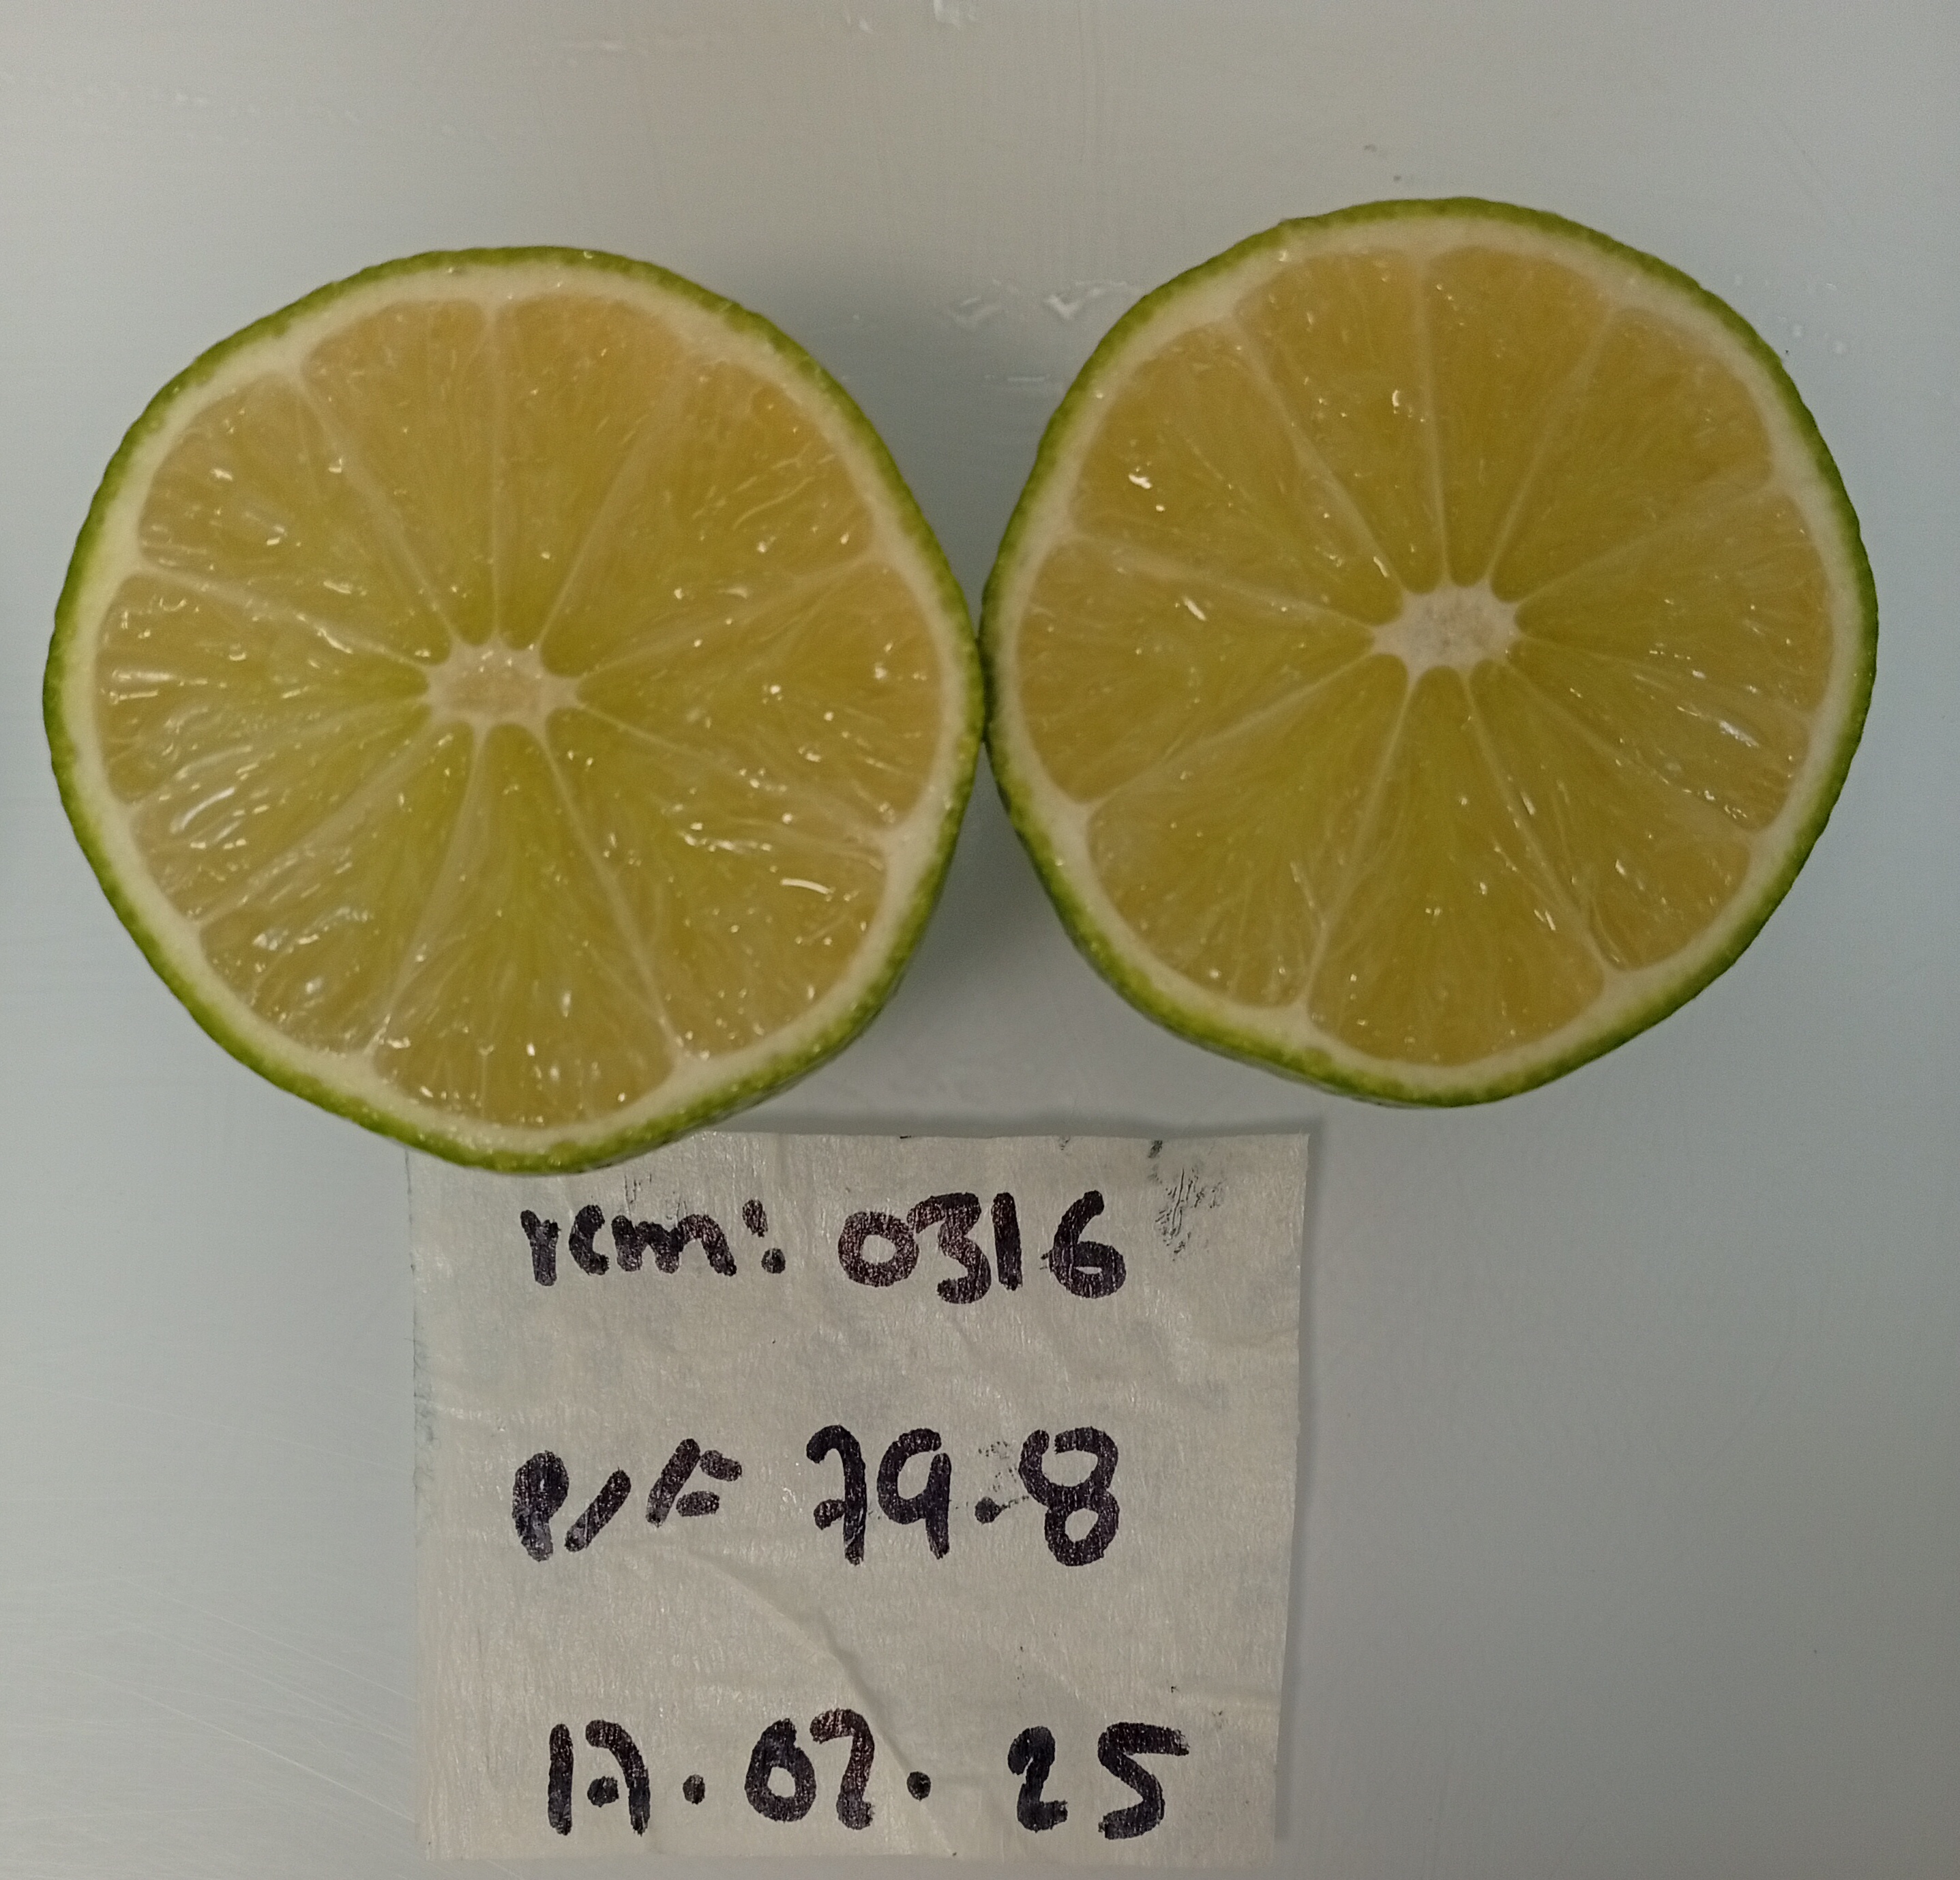 rcm: 0316
P/F 79.8
17.02.25